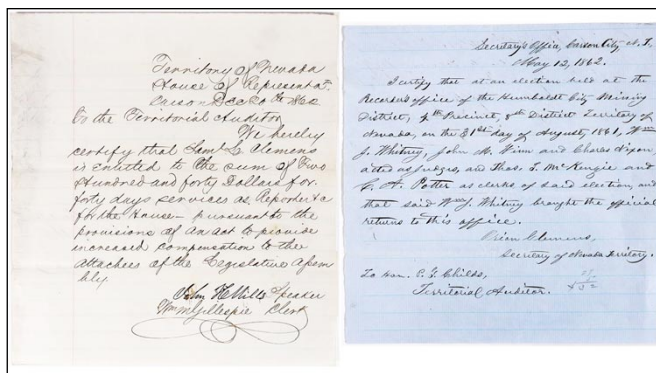 Territory of Nevada
House of Representat.
Carson Dec 20th 1862
To the Territorial Auditor
We hereby
certify that Saml. L. Clemens
is entitled to the sum of Two
Hundred and forty Dollars for
forty days services as Reporter &c
for the House – pursuant to the
provisions of An act to provide
increased compensation to the
attachees of the Legislative Assem
bly
John H Mills Speaker
Wm M Gillespie Clerk
Secretary's Office, Carson City, N.T.,
May 12, 1862.
I certify that at an election held at the
Recorder's office of the Humboldt City Mining
District, 4th Precinct, 8th District Territory of
Nevada, on the 31st day of August, 1861, Wm
J. Whitney, John M. Winn and Charles Dixon,
acted as judges, and Thos. J. McKenzie and
A. Potter as clerks of said election, and
that said Wm J. Whitney brought the official
returns to this office.
Orion Clemens,
Secretary of Nevada Territory.
To Hon. P. G. Childs,
Territorial Auditor.